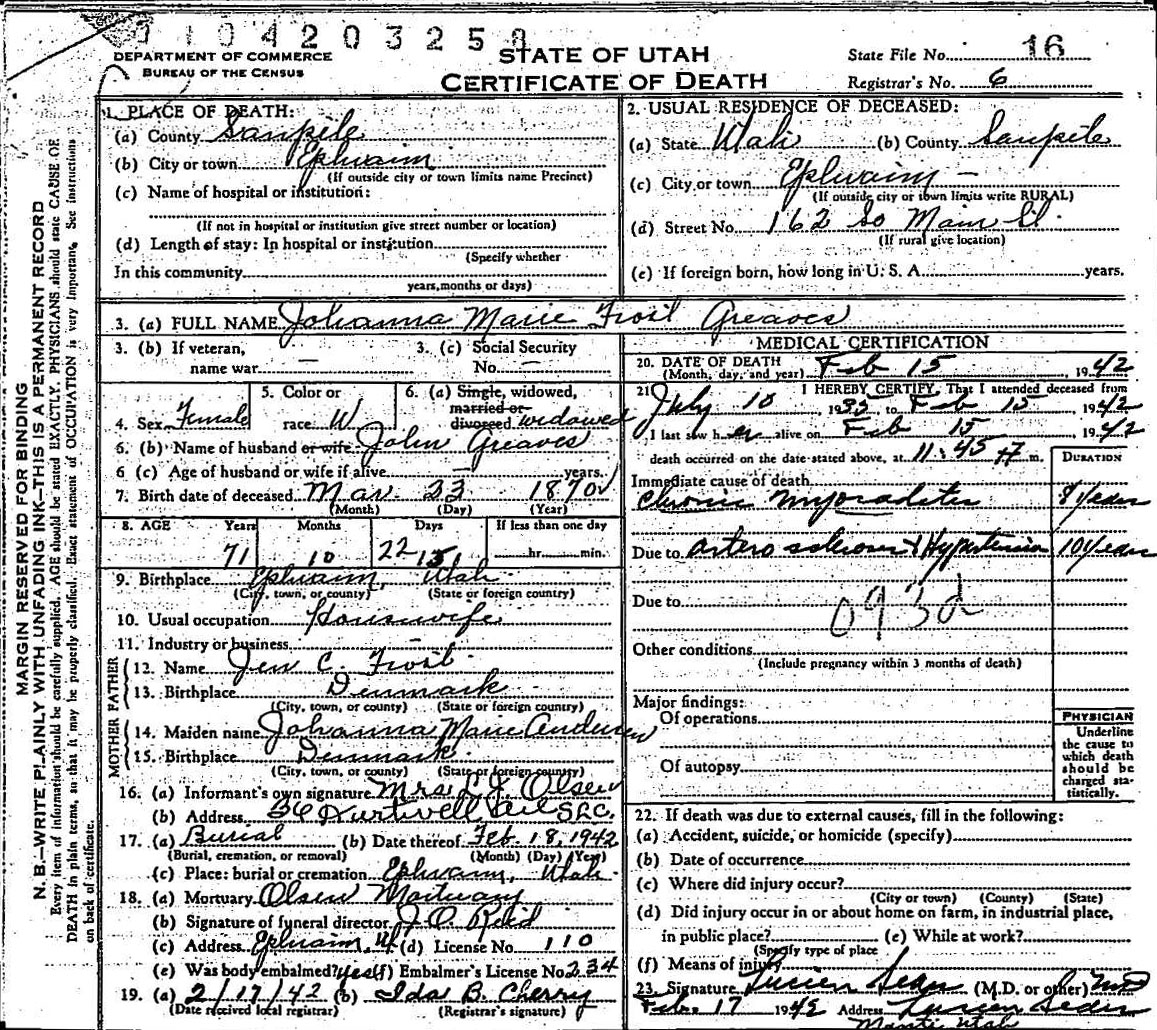 0104203258
DEPARTMENT OF COMMERCE
BUREAU OF THE CENSUS
STATE OF UTAH
CERTIFICATE OF DEATH
State File No. 16
Registrar's No. 6
MARGIN RESERVED FOR BINDING
N. B.—WRITE PLAINLY WITH UNFADING INK—THIS IS A PERMANENT RECORD
Every item of information should be carefully supplied. AGE should be stated EXACTLY. PHYSICIANS should state CAUSE OF
DEATH in plain terms, so that it may be properly classified. Exact statement of OCCUPATION is very important. See instructions
on back of certificate.
1. PLACE OF DEATH:
(a) County Sanpete
(b) City or town Ephraim
(If outside city or town limits name Precinct)
(c) Name of hospital or institution:
(If not in hospital or institution give street number or location)
(d) Length of stay: In hospital or institution
(Specify whether
In this community
years, months or days)
2. USUAL RESIDENCE OF DECEASED:
(a) State Utah (b) County Sanpete
(c) City or town Ephraim —
(If outside city or town limits write RURAL)
(d) Street No. 162 So Main St.
(If rural give location)
(e) If foreign born, how long in U. S. A. years.
3. (a) FULL NAME Johanna Marie Frost Greaves
3. (b) If veteran, name war —
3. (c) Social Security No. —
4. Sex Female
5. Color or race W
6. (a) Single, widowed, married or divorced widowed
6. (b) Name of husband or wife John Greaves
6. (c) Age of husband or wife if alive — years.
7. Birth date of deceased Mar. 23 1870
(Month) (Day) (Year)
8. AGE Years Months Days If less than one day
71 10 22 hr. min.
9. Birthplace Ephraim, Utah
(City, town, or county) (State or foreign country)
10. Usual occupation Housewife
11. Industry or business
FATHER
12. Name Jen C. Frost
13. Birthplace Denmark
(City, town, or county) (State or foreign country)
MOTHER
14. Maiden name Johanna Marie Andersen
15. Birthplace Denmark
(City, town, or county) (State or foreign country)
16. (a) Informant's own signature Mrs. Olsen
(b) Address 36 Ave S.L.C.
17. (a) Burial (b) Date thereof Feb. 18, 1942
(Burial, cremation, or removal) (Month) (Day) (Year)
(c) Place: burial or cremation Ephraim, Utah
18. (a) Mortuary Olsen Mortuary
(b) Signature of funeral director J. O. Reid
(c) Address Ephraim, Ut (d) License No. 110
(e) Was body embalmed? yes (f) Embalmer's License No. 234
19. (a) 2/17/42 (b) Ida B. Cherry
(Date received local registrar) (Registrar's signature)
MEDICAL CERTIFICATION
20. DATE OF DEATH Feb 15, 1942
(Month, day, and year)
21 I HEREBY CERTIFY, That I attended deceased from
July 10 1935 to Feb 15 1942
I last saw her alive on Feb 15, 1942
death occurred on the date stated above, at 11:45 m.
DURATION
Immediate cause of death
Chronic Myocraditis years
Due to Artero sclerosis & Hypertension 10 years
Due to
093d
Other conditions
(Include pregnancy within 3 months of death)
Major findings:
Of operations
Of autopsy
PHYSICIAN
Underline
the cause to
which death
should be
charged sta-
tistically.
22. If death was due to external causes, fill in the following:
(a) Accident, suicide, or homicide (specify)
(b) Date of occurrence
(c) Where did injury occur?
(City or town) (County) (State)
(d) Did injury occur in or about home on farm, in industrial place,
in public place? (e) While at work?
(Specify type of place
(f) Means of injury
23. Signature Lucien Sears (M.D. or other) MD
Feb. 17 1942 Address Lucien Sears
Manti Utah